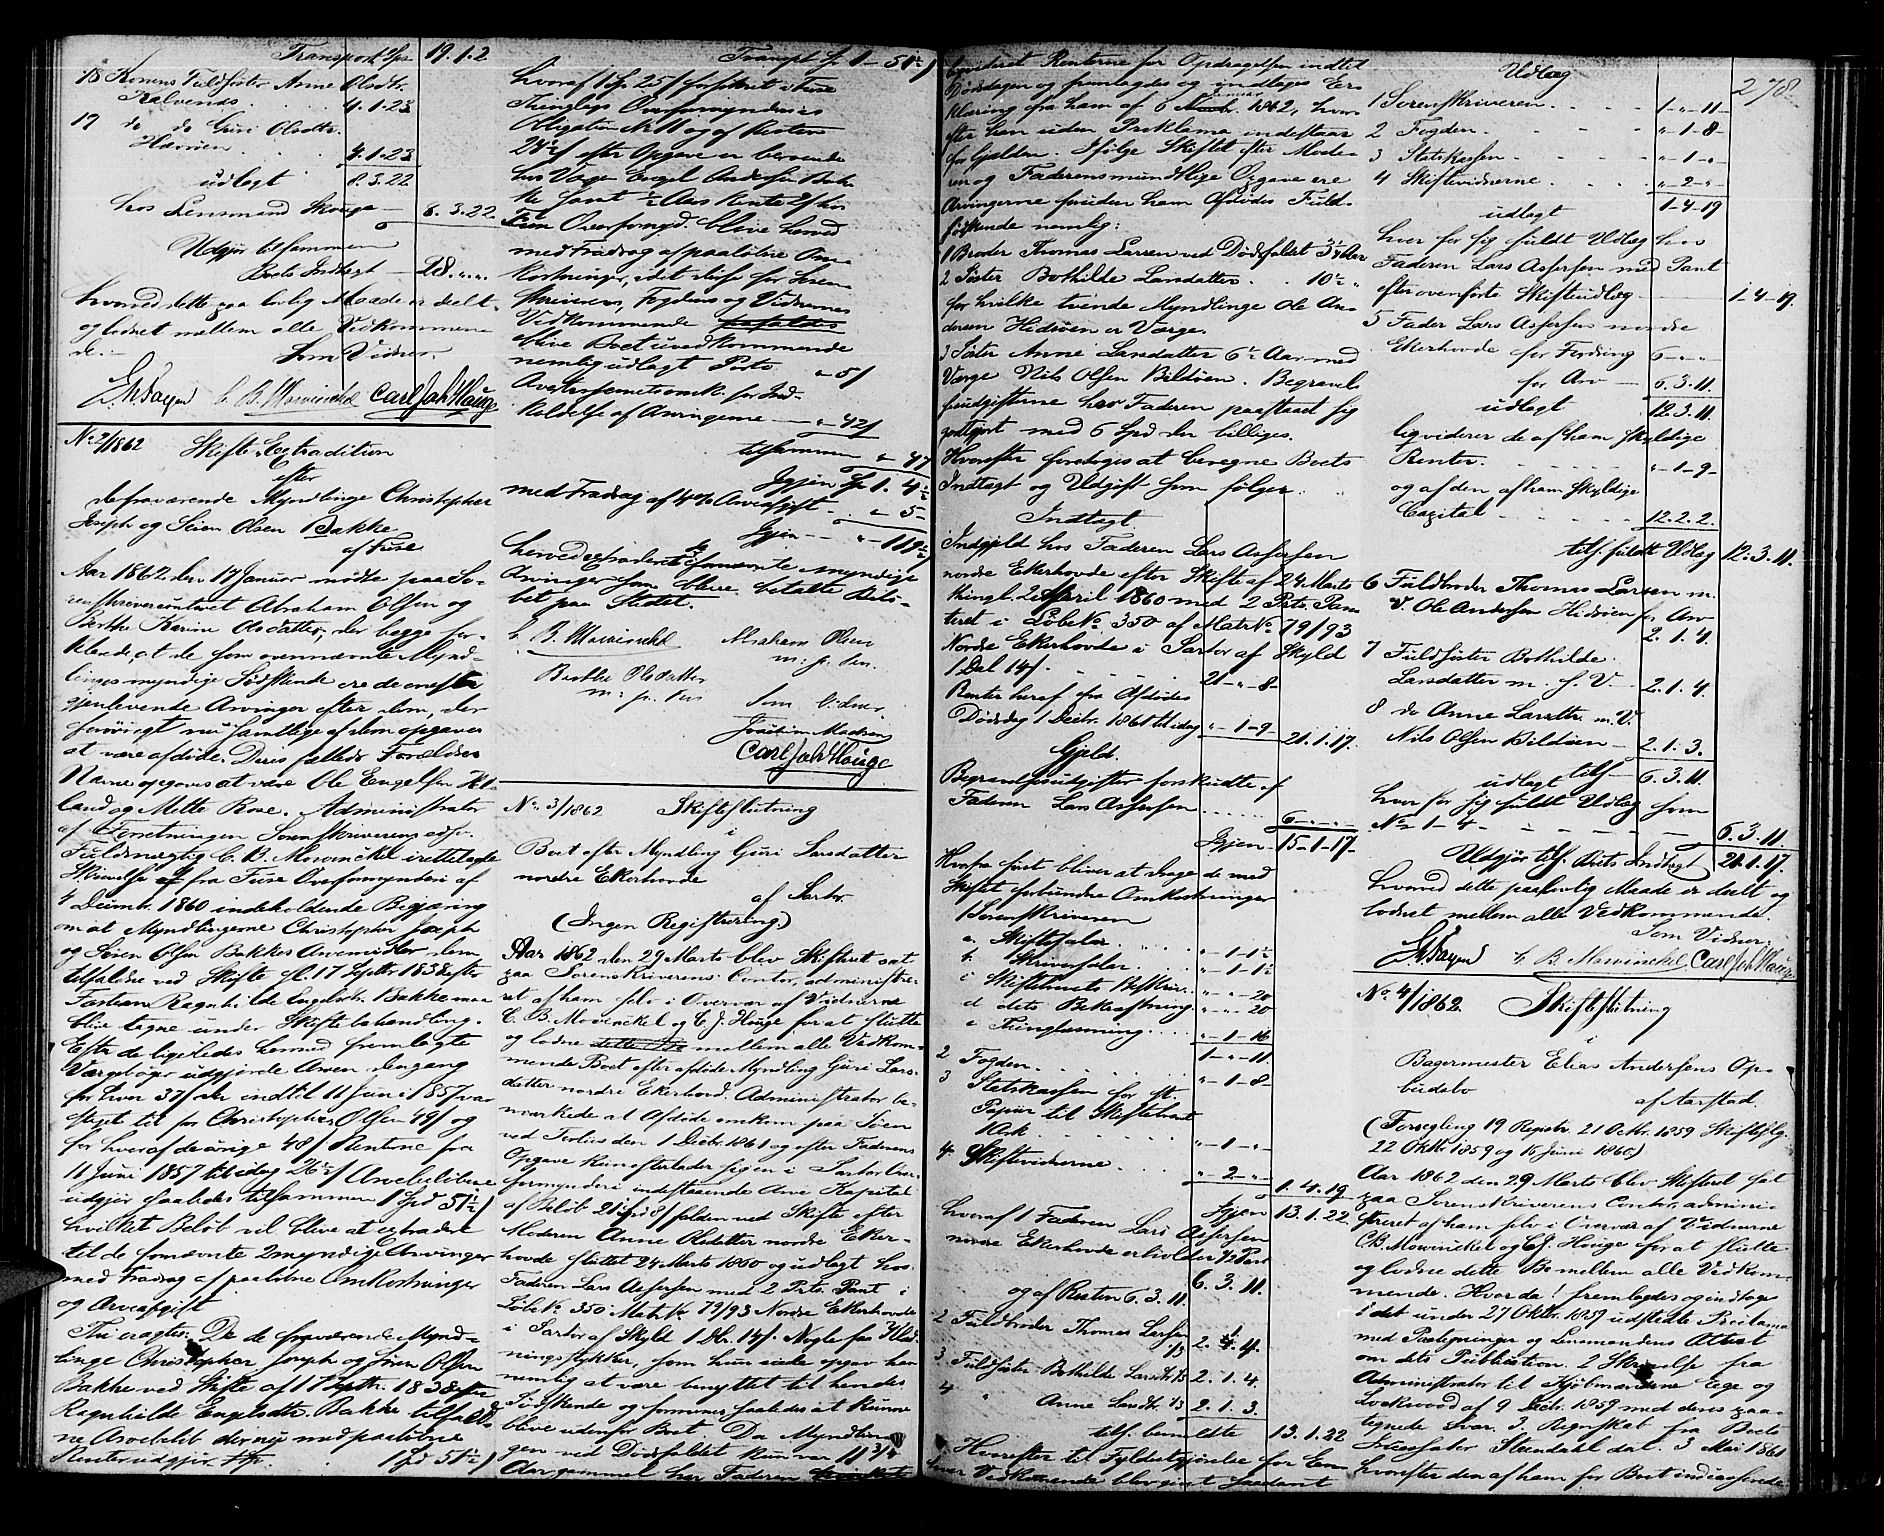 Transport Spd 19.1.2
18 Konens Fuldsøster Anne Olsdtr.
Kalvenæs 4.1.23
19 do do Guri Olsdtr.
4.1.23
udlagt 8.3.22
hos Lensmand Skouge 8.3.22
Udgjør tilsammen
Boets Indtægt 28. " "
hvormed dette paa lovlig Maade er deelt
og lodnet mellem alle Vedkommen
de.
Som Vidner,
C. B. Mowinckel Carl Joh Houge
No 2/1862 Skifte Extradition
efter
de fraværende Myndlinge Christopher
Joseph og Søren Olsen Bakke
af Fuse
Aar 1862 den 17 Januar mødte paa So-
renskrivercontoiret Abraham Olsen og
Berthe Karine Olsdatter, der begge for-
klarede, at de som ovennævnte Mynd-
linges myndige Sødskende ere de eneste
gjenlevende Arvinger efter dem, der
forøvrigt nu samtlige af dem opgaves
at være afdøde. Deres fælleds Forældres
Navne opgaves at være Ole Engelsen
og Mette Administrator
af Forretningen Sorenskriverens edsv.
Fuldmægtig C. B. Mowinckel irettelagde
Skrivelse fra Fuse Overformynderi af
4 Decembr. 1860 indeholdende Begjæring
om at Myndlingerne Christopher Joseph
og Søren Olsen Bakkes Arvemidler, dem
tilfaldne ved Skifte sl. 17 Septbr 1838 efter
Fasteren Regnhilde Engelsdtr. Bakke maa
blive tagne under Skiftebehandling.
Efter de ligeledes hermed fremlagte
Værgebøger udgjorde Arven dengang
for hver 37 indtil 11 Juni 1857 var
steget til for Christopher Olsen 49 og
for hver af de øvrige 48 Renterne fra
11 Juni 1857 til idag 26 Arvebeløbene
udgjør saaledes tilsammen 1 Spd 51½
hvilket Beløb vil blive at extradere
til de fornævnte 2 myndige Arvinger
med Fradrag af paaløbne Omkostninger
og Arveafgift
Thi eragtes: De de fraværende Mynd-
linge Christopher Joseph og Søren Olsen
Bakke ved Skifte af 17 Septbr. 1838 efter
Regnhilde Engelsdtr. Bakke tilfald-
ne Arvebeløb derney med paaløbne
Renter udgjør 1 Spd 51½
Transpt Sp. 1 – 51½
hvoraf 1 Sp. 25 forsikret i Fuse
Thinglags Overformynderies
Obligation No 11 og af Resten
efter Opgave er beroende
hos Værge Engel Andersen Bak-
ke samt ½ Aars Rente 2 hos
Fuse Overformynd. blive herved
med Fradrag af paaløbne Om-
kostninger, idet disse for Soren-
skriverens, Fogdens og Vidnernes
Vedkommende
blive Boet uvedkommende
nemlig udlagt Porto " 5
Avertissementsomk. for Ind-
kaldelse af Arvingerne " 42
tilsammen " 47
Igjen Sp 1. 4½
med Fradrag af 4% Arveafgift " 5
Igjen " 119½
herved extraderet de fornævnte myndige
Arvinger som bleve betalte Belø-
bet paa Stedet.
C. B. Mowinckel Abraham Olsen
m. p. Pen.
Berthe Olsdatter
m. p. Pen
Som Vidner,
Madsen
Carl Joh Houge
No 3/1862 Skifteslutning
i
Boet efter Myndling Guri Larsdatter
nordre Ekerhovde
af Sartor
(Ingen Registrering)
Aar 1862 den 29 Marts blev Skifteret sat
paa Sorenskriverens Contor, administre-
ret af ham selv i Overvær af Vidnerne
C. B. Mowinckel og C. J. Houge for at slutte
og lodne dette Bo mellem alle Vedkom-
mende Boet efter afdøde Myndling Guri Lars-
datter nordre Ekerhovd. Administrator be-
mærkede at Afdøde omkom paa Søen
ved Forliis den 1 Decbr. 1861 og efter Faderens
Opgave kun efterlader sig en i Sartor Over-
formynderi indestaaende Arve Kapital
af Beløb 21 Spd 8 falden ved Skifte efter
Moderen Anne Olsdatter nordre Eker-
hovde sluttet 24 Marts 1860 og udlagt hos
Faderen Lars Assersen med 2 Prts. Pant i
Løbe No 350 Matr. No 79/93 Nordre Ekerhovde
i Sartor af Skyld 1 Dl. 14. Nogle faa Klæd-
ningsstykker, som hun eiede opgav han
nemlig at være benyttet til hendes
Sødskende og formener saaledes at kunne
blive udenfor Boet. Da Myndlin-
gen ved Dødsfaldet kun var 11 3/4
Aar gammel har Faderen
beregnet Renterne for Opdragelsen indtil
Dødsdagen og fremlagdes og indtages Er-
klæring fra ham af 6 Januar 1862, hvor-
efter han uden Proklama indestaar
for Gjælden. Ifølge Skiftet efter Mode-
ren og Faderens mundtlige Opgave ere
Arvingerne foruden ham Afdødes Fuld-
sødskende nemlig:
1 Broder Thomas Larsen ved Dødsfaldet 3½ Aar
2 Søster Bothilde Larsdatter . . 10½ "
for hvilke tvende Myndlinge Ole An-
dersen Hidsøen er Værge.
3 Søster Anne Larsdatter 6½ Aar med
Værge Nils Olsen Bildøen. Begravel-
sesudgifterne har Faderen paastaaet sig
godtgjort med 6 Spd der billiges.
Hvorefter foretoges at beregne Boets
Indtægt og Udgift som følger:
Indtægt.
Indgjeld hos Faderen Lars Assersen
nordre Ekerhovde efter Skifte af 24 Marts
thingl. 2 April 1860 med 2 Prts. Pan-
teret i Løbe No. 350 af Matr No 79/93
Nordre Ekerhovde i Sartor af Skyld
1 Dal. 14 21 - " - 8 -
Renter heraf fra Afdødes
Dødsdag 1 Decbr. 1861 til idag " - 1 - 9 21.1.17.
Gjeld.
Begravelsesudgifter forskudte af
Faderen Lars Assersen 6 - " - "
Igjen 15 - 1 - 17 -
Hvorfra først bliver at drage de med
Skiftet forbundne Omkostninger
1 Sorenskriveren
a. Skiftesalær " - 1 - 1½
b. Skriversalær " - 1 - 1½
c Skiftebrevets Beskriv. " - " - 20
d dets Bekræftning " - " 20
e Thinglæsning " - 1 - 16
1 - " - 11
2 Fogden " - 1 - 8 -
3 Statskassen for st.
Papiir til Skiftebrevet
1 Ark " - 1 - "
4 Skiftevidnerne " - 2 - "
1. 4. 19
Igjen 13. 1. 22
hvoraf 1 Faderen Lars Assersen
nordre Ekerhovde erholder ½ Part
6. 3. 11.
og af Resten 6. 3. 11.
2 Fuldbroder Thomas Larsen
1/3 2. 1. 4.
3 Fuldsøster Bothilde Larsdtr 1/3 2. 1. 4.
4 " Anne Larsdtr. 1/3 2. 1. 3.
tilf. bemeldte 13. 1. 22
Herefter til Fyldestgjørelse for En-
hver Vedkommende blev givet saadant
Udlæg
278
1 Sorenskriveren 1 - " - 11 -
2 Fogden " - 1 - 8 -
3 Statskassen " - 1 - "
4 Skiftevidnerne " - 2 - "
udlagt 1 - 4 - 19
hver for sig fuldt Udlæg hos
Faderen Lars Assersen med Pant
efter ovenførte Skifteudlæg 1 - 4 - 19.
5 Fader Lars Assersen nordre
Ekerhovde for Fordring 6 - " - "
for Arv 6. 3. 11.
udlagt 12. 3. 11.
liqviderer de af ham skyldige
Renter " - 1 - 9 -
og af den af ham skyldige
Capital 12. 2. 2.
tilf. fuldt Udlæg 12. 3. 11.
6 Fuldbroder Thomas Larsen m.
V. Ole Andersen Hidsøen for Arv
2. 1. 4.
7 Fuldsøster Bothilde
Larsdatter m. s. V. 2. 1. 4.
8 do Anne Larsdtr. m. V.
Nils Olsen Bildøen 2. 1. 3.
udlagt tilf. 6. 3. 11
hver for sig fuldt Udlæg som
No 1 - 4 - 6. 3. 11
Udgjør tilf. Boets Indtægt 21. 1. 17.
hvormed dette paa lovlig Maade er deelt og
lodnet mellem alle Vedkommende.
Som Vidner,
C. B. Mowinckel Carl Joh Houge
No. 4/1862. Skifteslutning
i
Bagermester Elias Andersens Op-
budsbo
af Aarstad.
(Forsegling 19 Registr. 21 Octbr. 1859 Skiftesl.
22 Oktbr 1859 og 15 Juni 1860)
Aar 1862 den 29 Marts blev Skifteret sat
paa Sorenskriverens Contor, admini-
streret af ham selv i Overvær af Vidnerne
C. B. Mowinckel og C. J. Houge for at slutte
og lodne dette Bo mellem alle Vedkom-
mende. Hvorda 1 fremlagdes og indtoges
i det under 27 Oktbr. 1859 udstedte Proclama
med Paategninger og Lensmandens Attest
om dets Publication. 2 Skrivelse fra
Administrator til Kjøbmændene Ege og
Lockwood af 9 Decbr. 1859 med deres paa-
tegnede Svar. 3. Regnskab fra Boets
Incassator Stendahl dat. 3 Mai 1861
hvorefter den af ham for Boet indcasserede